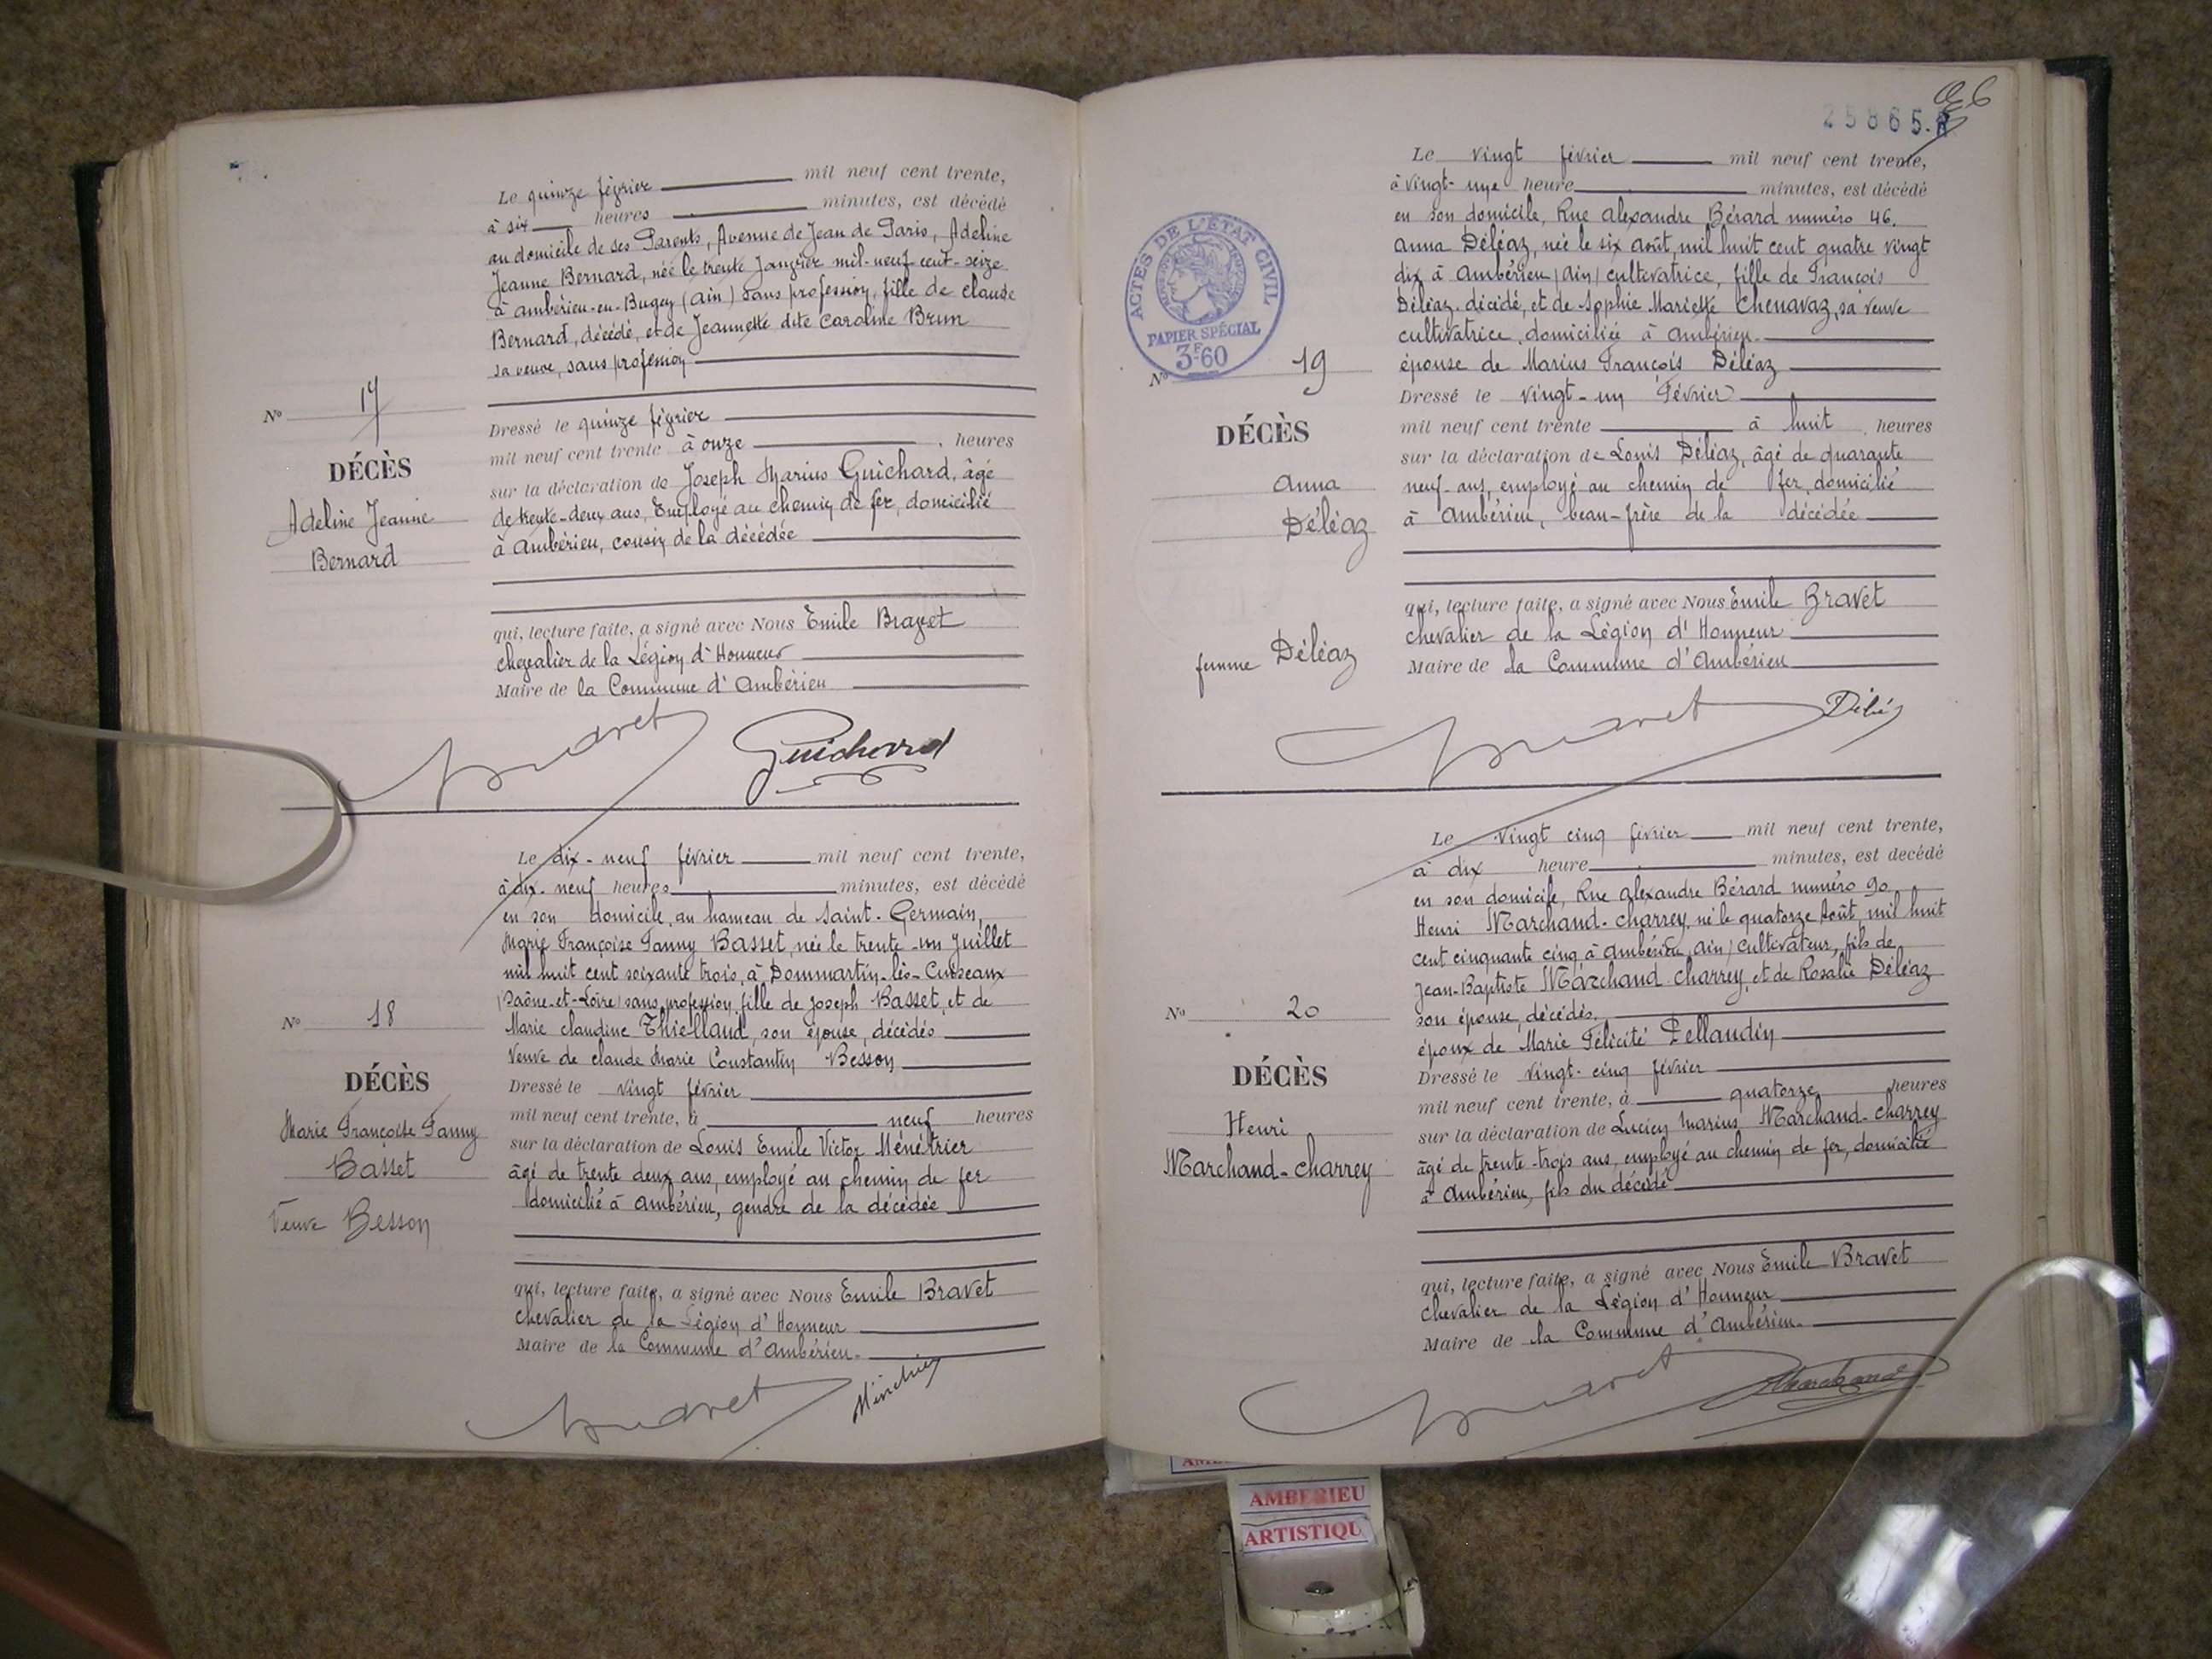 Le quinze février mil neuf cent trente,
à six heures minutes, est décédé
au domicile de ses Parents, Avenue de Jean de Paris, Adeline
Jeanne Bernard, née le trente Janvier mil-neuf cent-seize
à Ambérieu-en-Bugey (Ain) sans profession, fille de claude
Bernard, décédé, et de Jeannette dite Caroline Brun
sa veuve, sans profession
Dressé le quinze février
mil neuf cent trente à onze heures
sur la déclaration de Joseph Marius Guichard, âgé
de trente-deux ans, Employé au chemin de fer, domicilié
à Ambérieu, cousin de la décédée
qui, lecture faite, a signé avec Nous Emile Bravet
chevalier de la Légion d'Honneur
Maire de la Commune d'Ambérieu
N° 17
DÉCÈS
Adeline Jeanne
Bernard
Bravet
Guichard
Le dix-neuf février mil neuf cent trente,
à dix-neuf heures minutes, est décédé
en son domicile au hameau de Saint-Germain,
Marie Françoise Fanny Basset, née le trente-un Juillet
mil huit cent soixante trois, à Dommartin-lès-Cuiseaux
(Saône-et-Loire) sans profession, fille de Joseph Basset, et de
Marie claudine Thielland, son épouse, décédés
Veuve de claude Marie Constantin Besson
Dressé le vingt février
mil neuf cent trente, à neuf heures
sur la déclaration de Louis Emile Victor Ménétrier
âgé de trente deux ans, employé au chemin de fer
domicilié à Ambérieu, gendre de la décédée
qui, lecture faite, a signé avec Nous Emile Bravet
chevalier de la Légion d'Honneur
Maire de la Commune d'Ambérieu.
N° 18
DÉCÈS
Marie Françoise Fanny
Basset
Veuve Besson
Bravet
25865.
ACTES DE L'ÉTAT CIVIL
PAPIER SPÉCIAL
3F60
Le vingt février mil neuf cent trente,
à vingt-une heure minutes, est décédé
en son domicile, Rue Alexandre Bérard numéro 46.
Anna Déléaz, née le six Août mil huit cent quatre vingt
dix à Ambérieu (Ain) cultivatrice, fille de François
Déléaz, décédé, et de Sophie Mariette Chenavaz, sa veuve
cultivatrice, domiciliée à Ambérieu.
épouse de Marius François Déléaz
Dressé le vingt-un Février
mil neuf cent trente à huit heures
sur la déclaration de Louis Déléaz, âgé de quarante
neuf-ans, employé au chemin de fer, domicilié
à Ambérieu, beau-frère de la décédée
qui, lecture faite, a signé avec Nous Emile Bravet
chevalier de la Légion d'Honneur
Maire de la Commune d'Ambérieu
N° 19
DÉCÈS
Anna
Déléaz
femme Déléaz
Bravet
Le vingt cinq février mil neuf cent trente,
à dix heure minutes, est decédé
en son domicile, Rue Alexandre Bérard numéro 90
Henri Marchand-Charrey, né le quatorze Août, mil huit
cent cinquante cinq à Ambérieu (Ain) cultivateur, fils de
Jean-Baptiste Marchand-Charrey, et de Rosalie Déléaz
son épouse, décédés.
époux de Marie Félicité Pellaudin
Dressé le vingt-cinq février
mil neuf cent trente, à quatorze heures
sur la déclaration de Lucien Marius Marchand-Charrey
âgé de trente-trois ans, employé au chemin de fer, domicilié
à Ambérieu, fils du décédé
qui, lecture faite, a signé avec Nous Emile Bravet
chevalier de la Légion d'Honneur
Maire de la Commune d'Ambérieu.
N° 20
DÉCÈS
Henri
Marchand-Charrey
Bravet
Marchand
AMBERIEU
ARTISTIQU